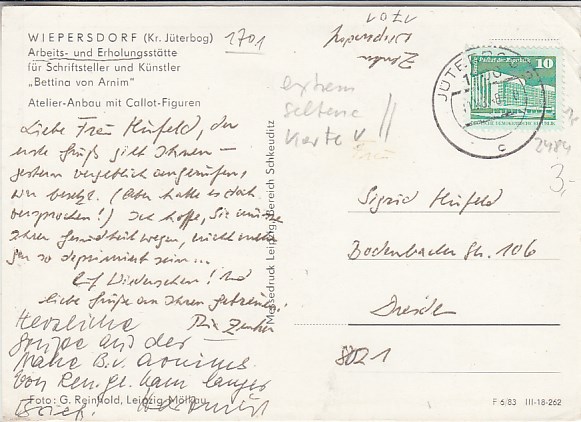 WIEPERSDORF (Kr. Jüterbog)
Arbeits- und Erholungsstätte
für Schriftsteller und Künstler
„Bettina von Arnim"
Atelier-Anbau mit Callot-Figuren
1701
Zentner
Wiepersdorf
1701
extrem
seltene
Karte
Liebe Frau Hinfeld, der
erste Gruß gilt Ihnen –
gestern vergeblich angerufen,
war besetzt. (Aber hatte es doch
versprochen!) Ich hoffe, Sie müssen
Ihrer Gesundheit wegen, nicht mehr
gar so deprimiert sein...
Auf Wiedersehen! Und
liebe Grüße an Ihren
Zentner
Herzliche
Grüße aus der
Nähe B. v. Arnims.
Von langer
Brief!
JÜTERBOG
Palast der Republik
10
DEUTSCHE DEMOKRATISCHE REPUBLIK
c
2484
3,-
Sigrid Hinfeld
Bodenbacher Str. 106
Dresden
8021
Messedruck Leipzig, Bereich Schkeuditz
Foto: G. Reinhold, Leipzig-Mölkau
F 6/83 III-18-262